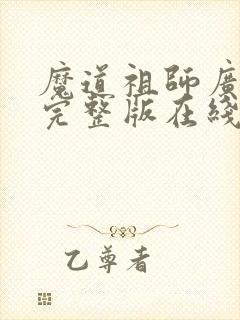 魔道祖師廣
完整版在綫
乙尊者